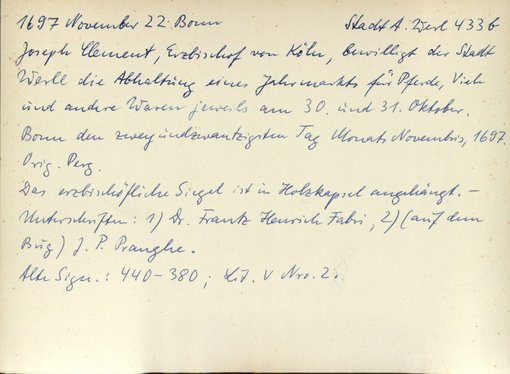 1697 November 22 Bonn Stadt A. Werl 433b
Joseph Clement, Erzbischof von Köln, bewilligt der Stadt
Werll die Abhaltung eines Jahrmarkts für Pferde, Vieh
und andere Waren jeweils am 30. und 31. Oktober.
Bonn den zweyundzwantzigsten Tag Monats Novembris, 1697.
Orig. Perg.
Das erzbischöfliche Siegel ist in Holzkapsel angehängt. –
Unterschriften: 1) Dr. Frantz Henrich Fabri, 2) (auf dem
Bug) J. P. Pranghe.
Alte Sign.: 440–380; Lit. V Nro. 2.